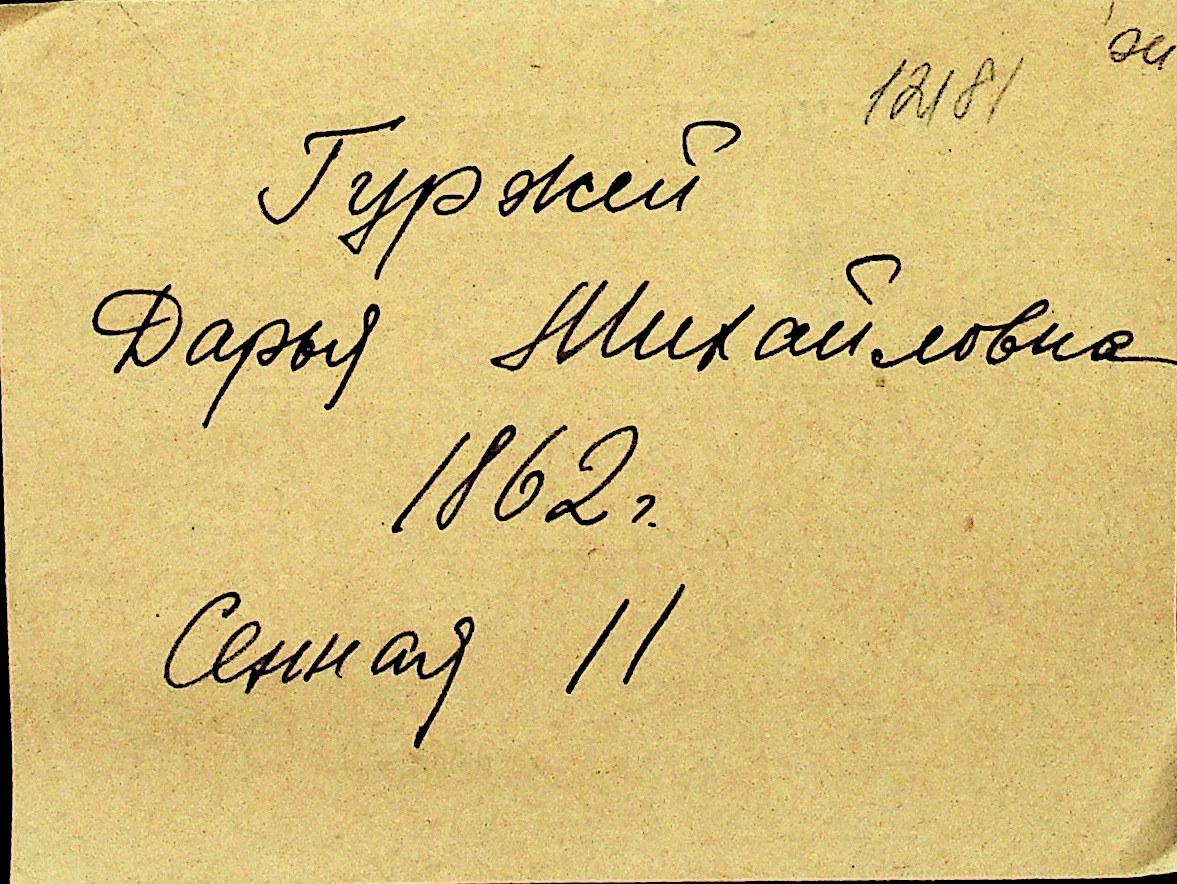 12181
Гуржей
Дарья Михайловна
1862 г.
Сенная 11